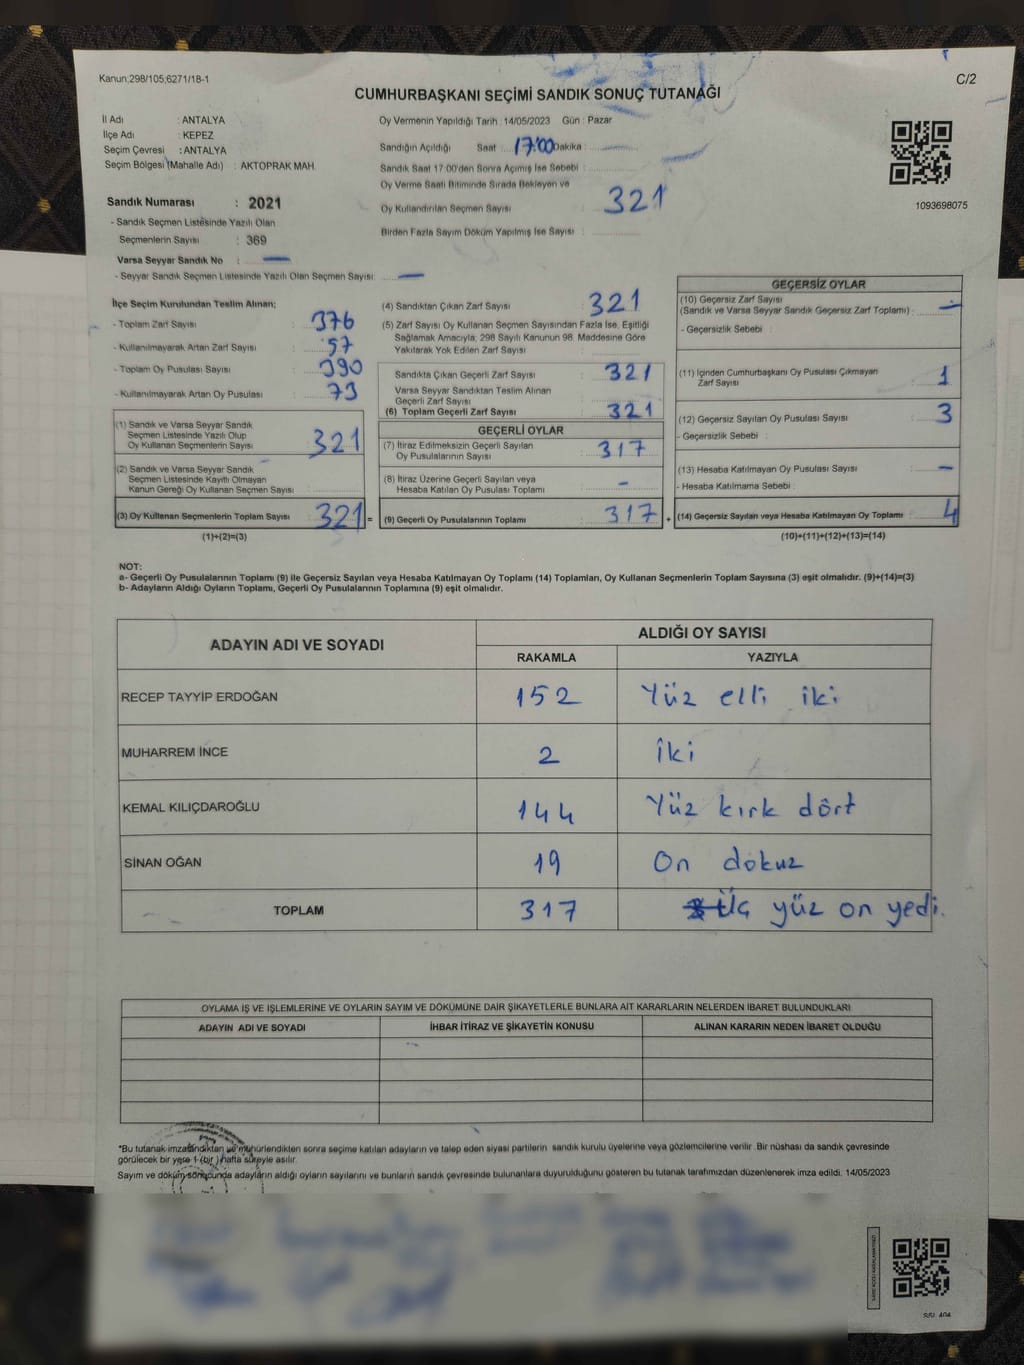 Kanun;298/105;6271/18-1
C/2
CUMHURBAŞKANI SEÇİMİ SANDIK SONUÇ TUTANAĞI
İl Adı : ANTALYA
İlçe Adı : KEPEZ
Seçim Çevresi : ANTALYA
Seçim Bölgesi (Mahalle Adı) : AKTOPRAK MAH.
Sandık Numarası : 2021
- Sandık Seçmen Listesinde Yazılı Olan
Seçmenlerin Sayısı : 369
Varsa Seyyar Sandık No : —
- Seyyar Sandık Seçmen Listesinde Yazılı Olan Seçmen Sayısı: —
Oy Vermenin Yapıldığı Tarih : 14/05/2023 Gün : Pazar
Sandığın Açıldığı Saat : 17:00 Dakika :
Sandık Saat 17:00'den Sonra Açımış İse Sebebi :
Oy Verme Saati Bitiminde Sırada Bekleyen ve
Oy Kullandırılan Seçmen Sayısı : 321
Birden Fazla Sayım Döküm Yapılmış İse Sayısı :
1093698075
İlçe Seçim Kurulundan Teslim Alınan;
- Toplam Zarf Sayısı : 376
- Kullanılmayarak Artan Zarf Sayısı : 57
- Toplam Oy Pusulası Sayısı : 390
- Kullanılmayarak Artan Oy Pusulası : 73
(1) Sandık ve Varsa Seyyar Sandık
Seçmen Listesinde Yazılı Olup
Oy Kullanan Seçmenlerin Sayısı : 321
(2) Sandık ve Varsa Seyyar Sandık
Seçmen Listesinde Kayıtlı Olmayan
Kanun Gereği Oy Kullanan Seçmen Sayısı :
(3) Oy Kullanan Seçmenlerin Toplam Sayısı : 321 =
(1)+(2)=(3)
(4) Sandıktan Çıkan Zarf Sayısı : 321
(5) Zarf Sayısı Oy Kullanan Seçmen Sayısından Fazla İse, Eşitliği
Sağlamak Amacıyla; 298 Sayılı Kanunun 98. Maddesine Göre
Yakılarak Yok Edilen Zarf Sayısı :
Sandıkta Çıkan Geçerli Zarf Sayısı : 321
Varsa Seyyar Sandıktan Teslim Alınan
Geçerli Zarf Sayısı :
(6) Toplam Geçerli Zarf Sayısı : 321
GEÇERLİ OYLAR
(7) İtiraz Edilmeksizin Geçerli Sayılan
Oy Pusulalarının Sayısı : 317
(8) İtiraz Üzerine Geçerli Sayılan veya
Hesaba Katılan Oy Pusulası Toplamı : -
(9) Geçerli Oy Pusulalarının Toplamı : 317 +
GEÇERSİZ OYLAR
(10) Geçersiz Zarf Sayısı
(Sandık ve Varsa Seyyar Sandık Geçersiz Zarf Toplamı) : —
- Geçersizlik Sebebi :
(11) İçinden Cumhurbaşkanı Oy Pusulası Çıkmayan
Zarf Sayısı : 1
(12) Geçersiz Sayılan Oy Pusulası Sayısı : 3
- Geçersizlik Sebebi :
(13) Hesaba Katılmayan Oy Pusulası Sayısı : —
- Hesaba Katılmama Sebebi :
(14) Geçersiz Sayılan veya Hesaba Katılmayan Oy Toplamı : 4
(10)+(11)+(12)+(13)=(14)
NOT:
a- Geçerli Oy Pusulalarının Toplamı (9) ile Geçersiz Sayılan veya Hesaba Katılmayan Oy Toplamı (14) Toplamları, Oy Kullanan Seçmenlerin Toplam Sayısına (3) eşit olmalıdır. (9)+(14)=(3)
b- Adayların Aldığı Oyların Toplamı, Geçerli Oy Pusulalarının Toplamına (9) eşit olmalıdır.
ADAYIN ADI VE SOYADI
ALDIĞI OY SAYISI
RAKAMLA YAZIYLA
RECEP TAYYİP ERDOĞAN 152 Yüz elli iki
MUHARREM İNCE 2 İki
KEMAL KILIÇDAROĞLU 144 Yüz kırk dört
SİNAN OĞAN 19 On dokuz
TOPLAM 317 Üç yüz on yedi.
OYLAMA İŞ VE İŞLEMLERİNE VE OYLARIN SAYIM VE DÖKÜMÜNE DAİR ŞİKAYETLERLE BUNLARA AİT KARARLARIN NELERDEN İBARET BULUNDUKLARI
ADAYIN ADI VE SOYADI İHBAR İTİRAZ VE ŞİKAYETİN KONUSU ALINAN KARARIN NEDEN İBARET OLDUĞU
*Bu tutanak imzalandıktan ve mühürlendikten sonra seçime katılan adayların ve talep eden siyasi partilerin sandık kurulu üyelerine veya gözlemcilerine verilir. Bir nüshası da sandık çevresinde
görülecek bir yere 1 (bir ) hafta süreyle asılır.
Sayım ve döküm sonucunda adayların aldığı oyların sayılarını ve bunların sandık çevresinde bulunanlara duyurulduğunu gösteren bu tutanak tarafımızdan düzenlenerek imza edildi. 14/05/2023